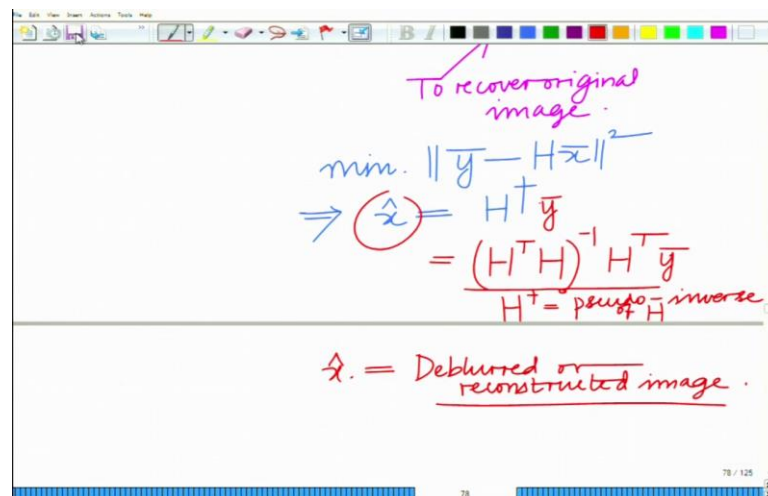 File Edit View Insert Actions Tools Help
B I
To recover original
image.
min. ‖y̅ − Hx̅‖²
⇒ x̂ = H† y̅
= (HᵀH)⁻¹ Hᵀ y̅
H† = pseudo-inverse
of H
x̂. = Deblurred or
reconstructed image.
78 / 125
78